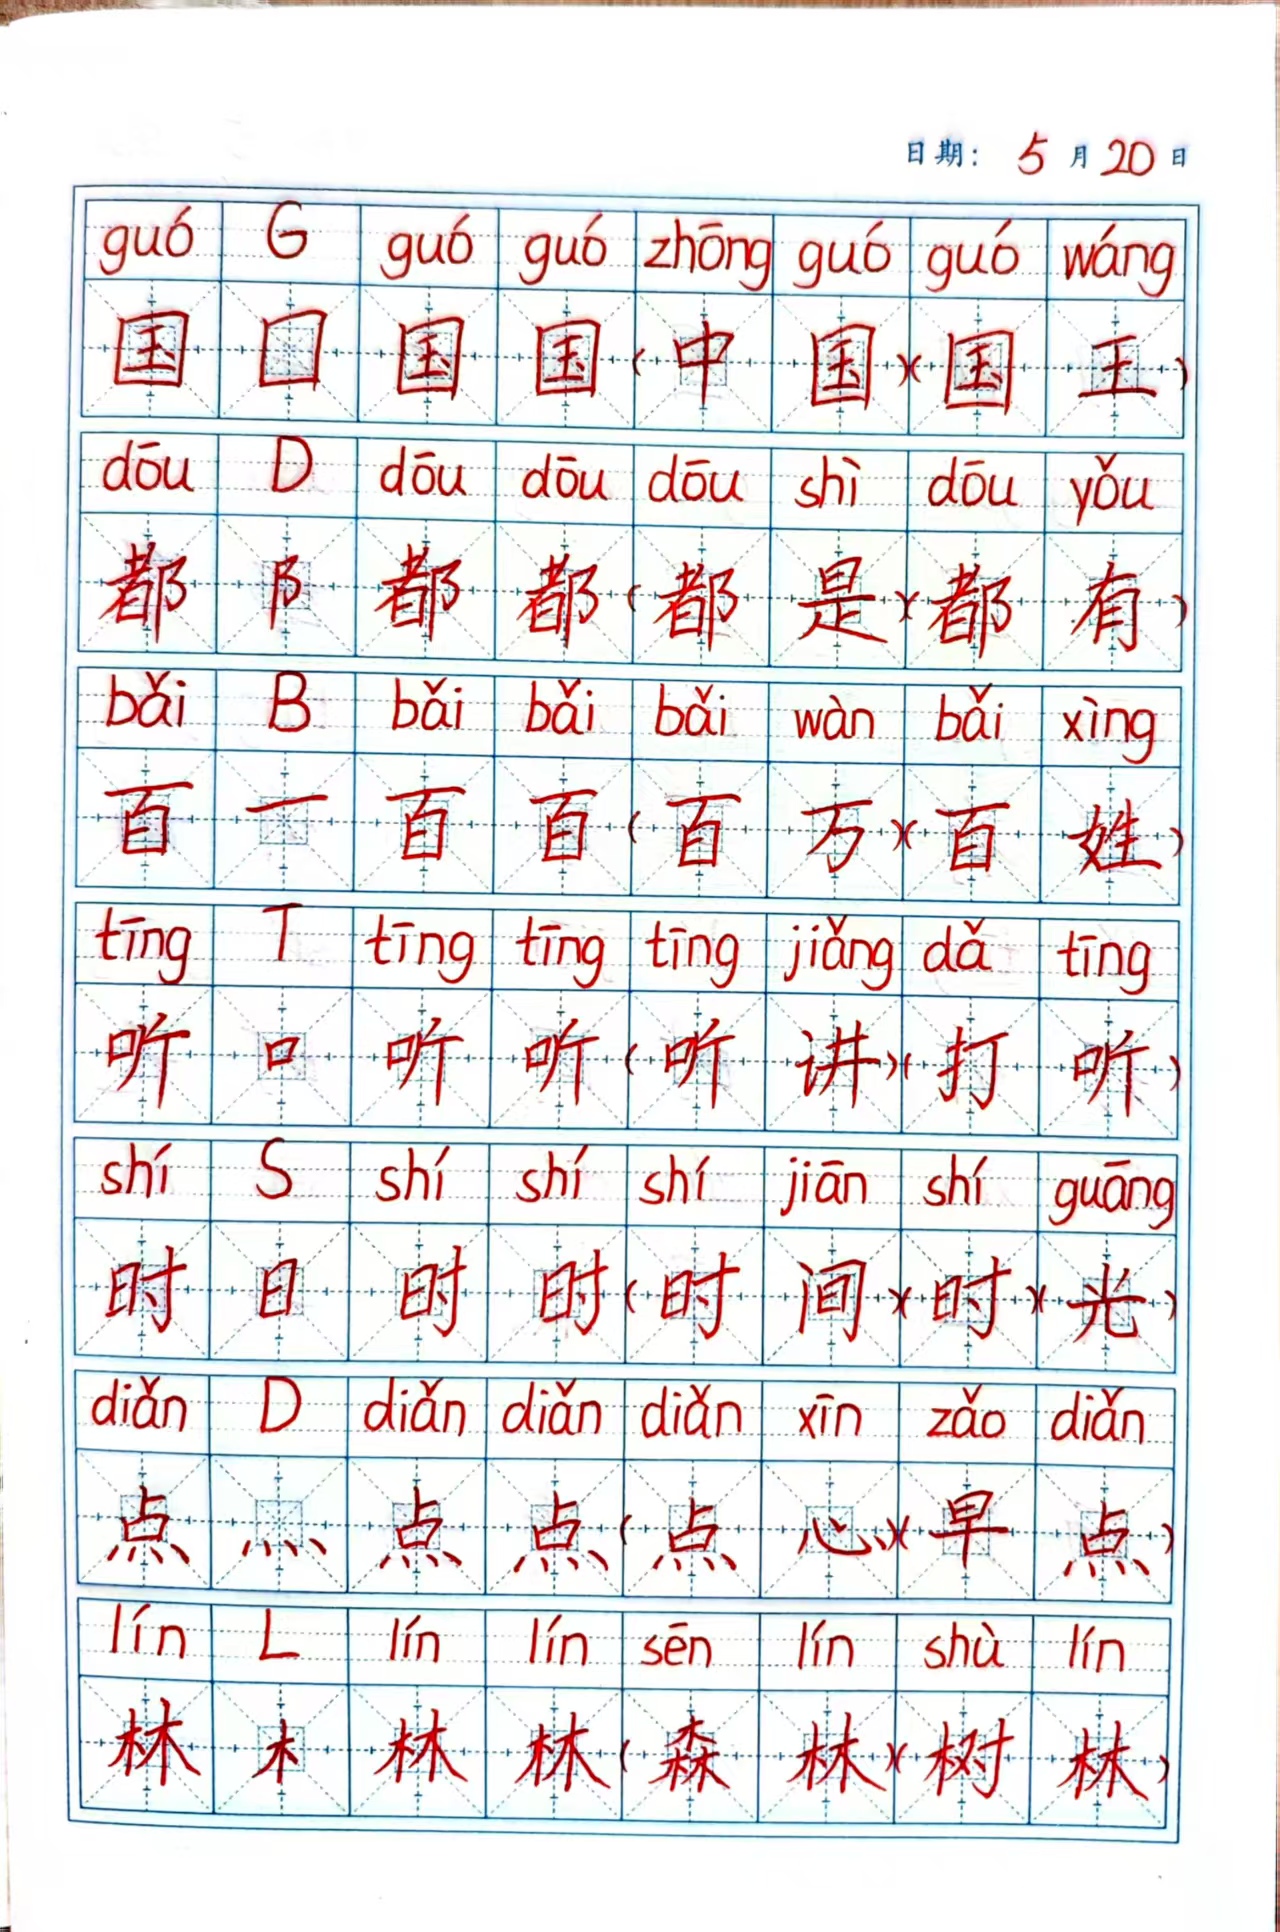 日期： 5 月 20 日
guó G guó guó zhōng guó guó wáng
国 囗 国 国 (中 国)(国 王)
dōu D dōu dōu dōu shì dōu yǒu
都 阝 都 都 (都 是)(都 有)
bǎi B bǎi bǎi bǎi wàn bǎi xìng
百 一 百 百 (百 万)(百 姓)
tīng T tīng tīng tīng jiǎng dǎ tīng
听 口 听 听 (听 讲)(打 听)
shí S shí shí shí jiān shí guāng
时 日 时 时 (时 间)(时)(光)
diǎn D diǎn diǎn diǎn xīn zǎo diǎn
点 灬 点 点 (点 心)(早 点)
lín L lín lín sēn lín shù lín
林 木 林 林 (森 林)(树 林)